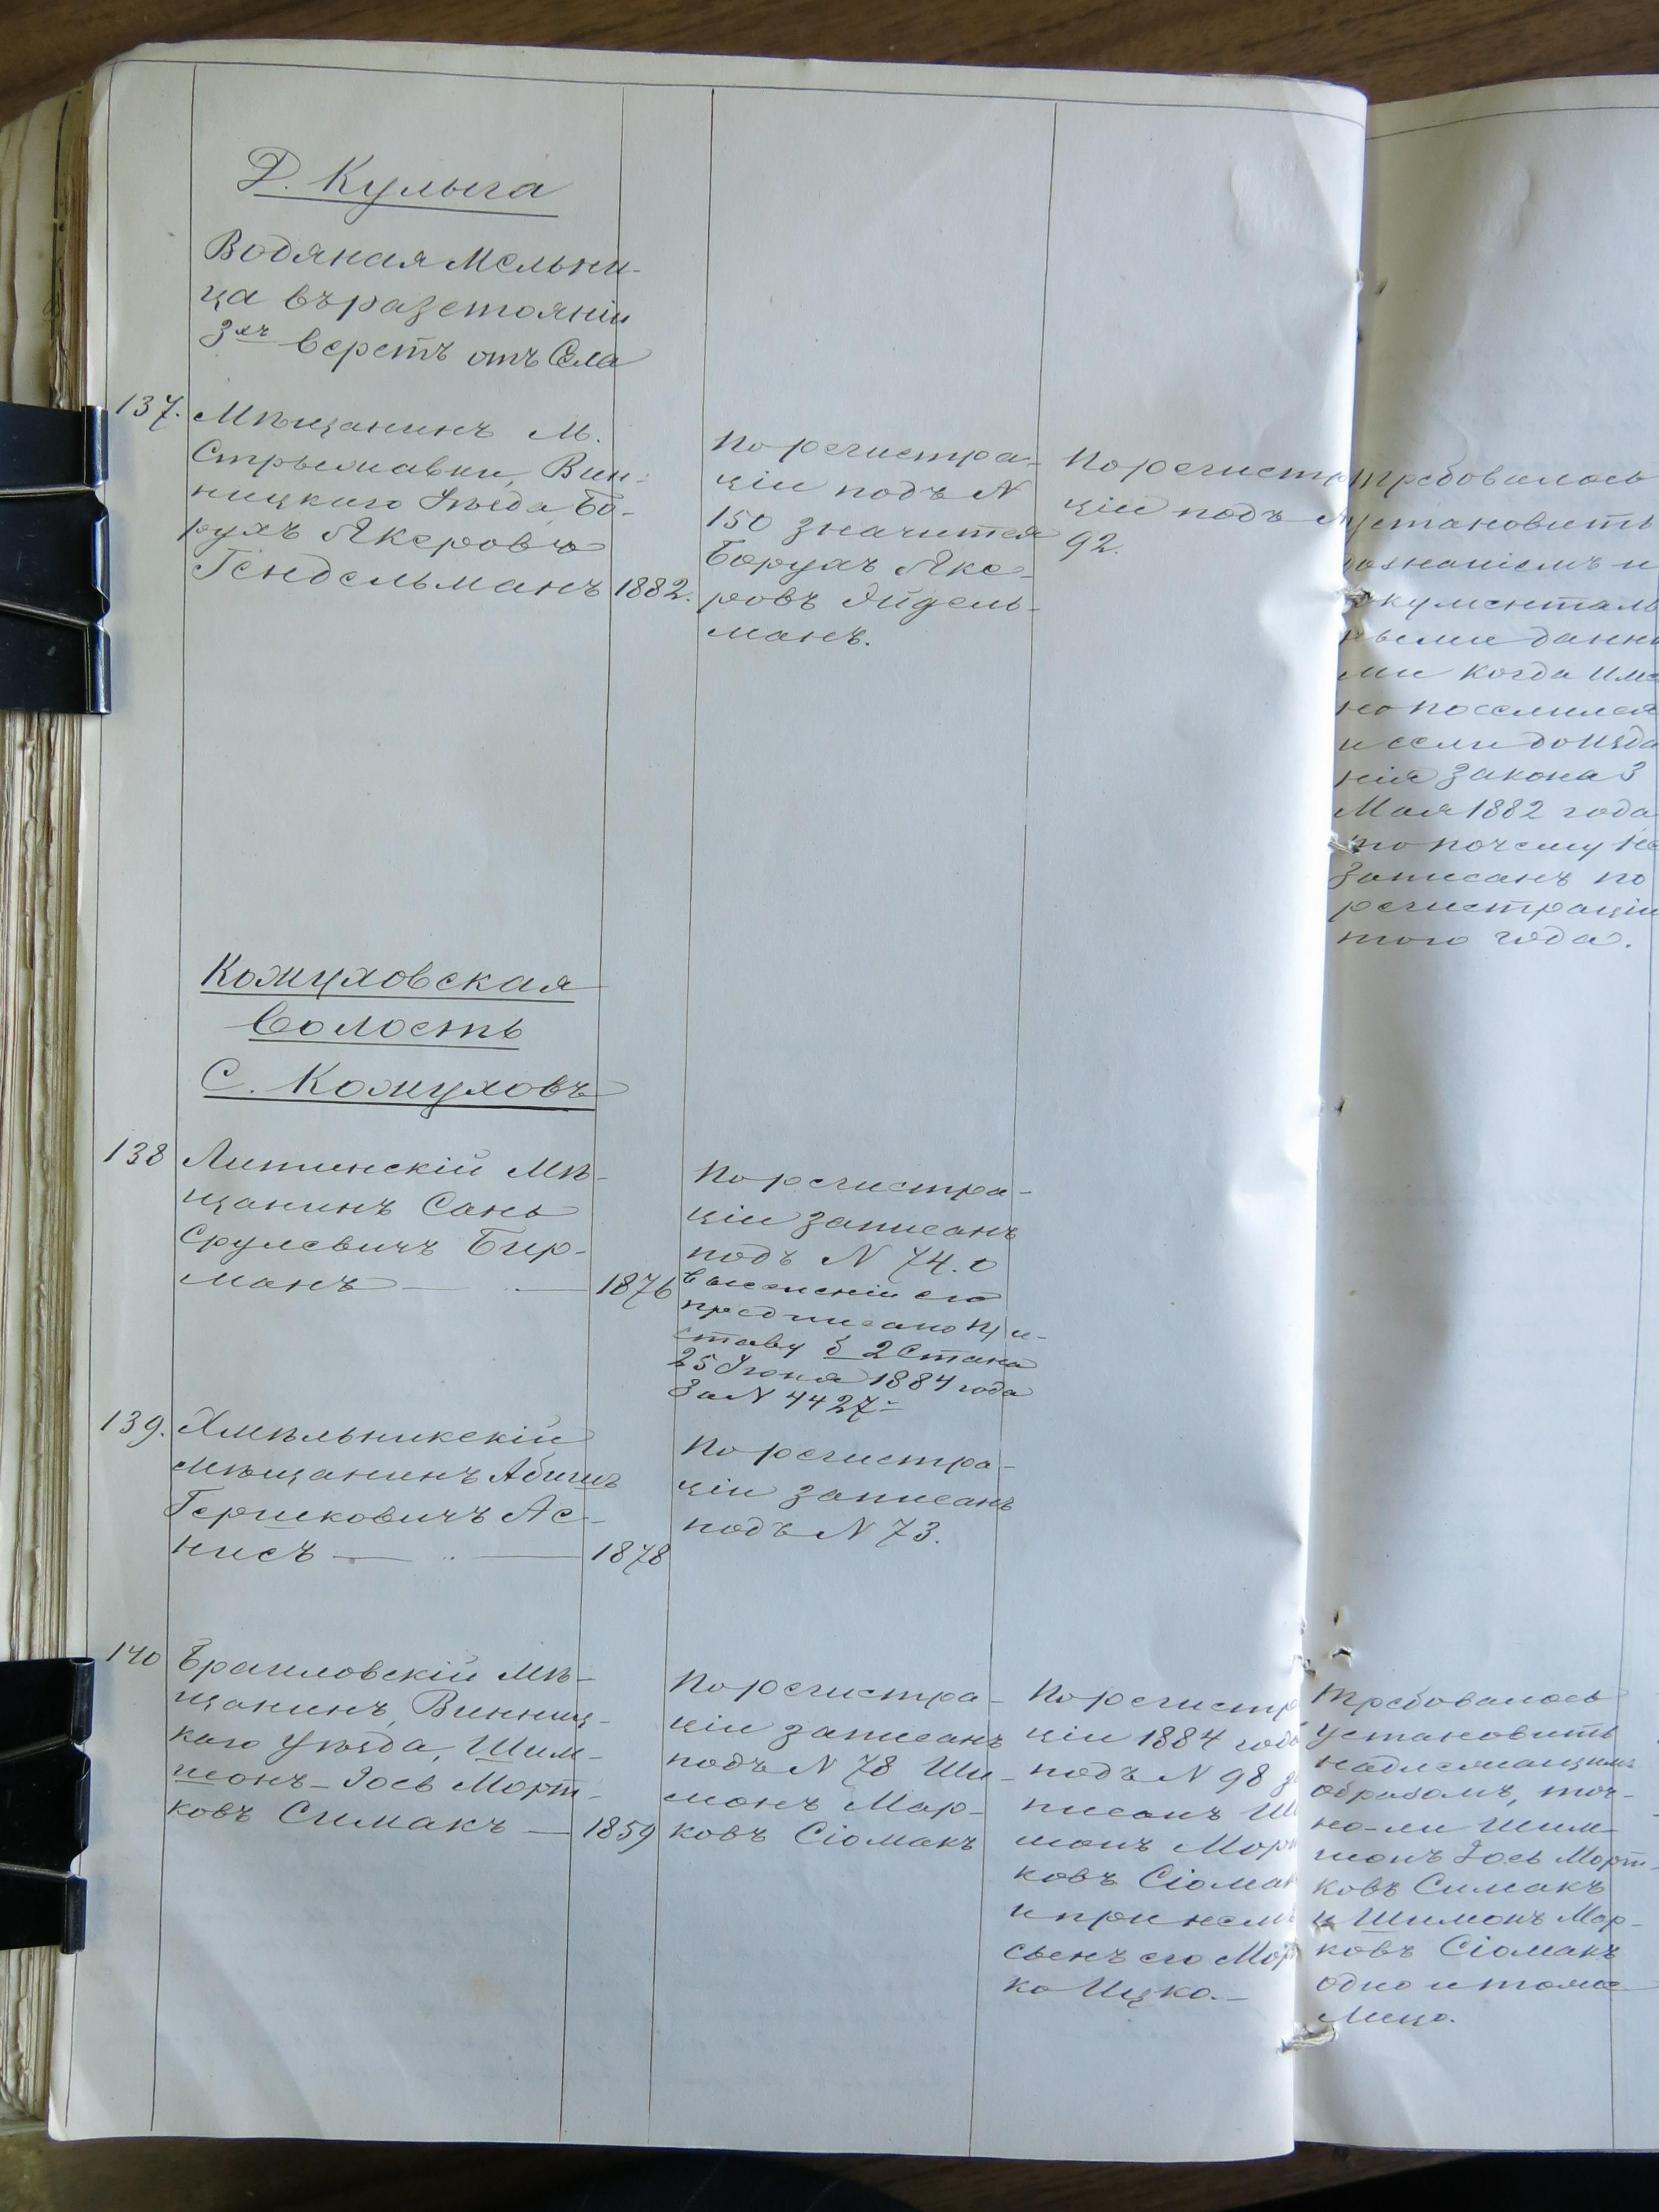 Д. Кулыга
Водяная Мельни-
ца въ разстоянiи
3хъ верстъ отъ Села
137. Мѣщанинъ М.
Стрыжавки, Вин-
ницкаго Уѣзда, Бо-
рухъ Якеровъ
Гендельманъ 1882.
По регистра-
цiи подъ N
150 значится
Борухъ Яке-
ровъ Эйдель-
манъ.
По регистр
цiи подъ N
92.
Требовалось
установить
дознанiемъ и
документаль
ными данны
ми когда Име
но поселился
и если до Изда
нiя Закона 3
Мая 1882 года
то почему не
Записанъ по
регистрацiи
того года.
Кожуховская
Волость
С. Кожуховъ
138 Литинскiй Мѣ-
щанинъ Сань
Срулевичъ Бир-
манъ — 1876
По регистра-
цiи записанъ
подъ N 74. О
выселенiи его
предписано При-
ставу 2 Стана
25 Iюня 1884 года
За N 4427
139. Хмѣльникскiй
мѣщанинъ Абишъ
Гершковичъ Ас-
нисъ — 1878
По регистра-
цiи записанъ
подъ N 73.
140 Браиловскiй Мѣ-
щанинъ, Винниц-
каго Уѣзда, Шим-
шонъ-Iось Морт-
ковъ Симакъ — 1859
По регистра-
цiи записанъ
подъ N 78 Ши-
монъ Мар-
ковъ Сiомакъ
По регистр
цiи 1884 года
подъ N 98 за
писанъ Ши
монъ Мор
ковъ Сiомак
и при немъ
сынъ его Мор
ко Ицко.—
Требовалось
установить
надлежащимъ
образомъ, точ-
но-ли Шим-
шонъ Iось Морт-
ковъ Симакъ
и Шимонъ Мар-
ковъ Сiомакъ
одно и тоже
Лицо.